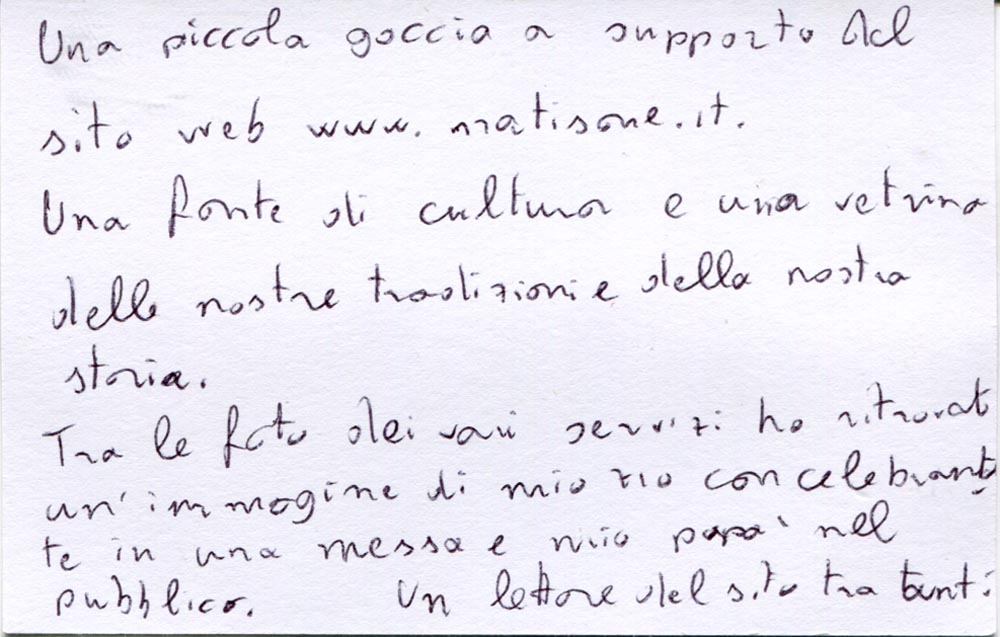 Una piccola goccia a supporto del
sito web www.matisone.it.
Una fonte di cultura e una vetrina
delle nostre tradizioni e della nostra
storia.
Tra le foto dei vari servizi ho ritrovato
un'immagine di mio zio concelebran
te in una messa e mio papà nel
pubblico. Un lettore del sito tra tanti